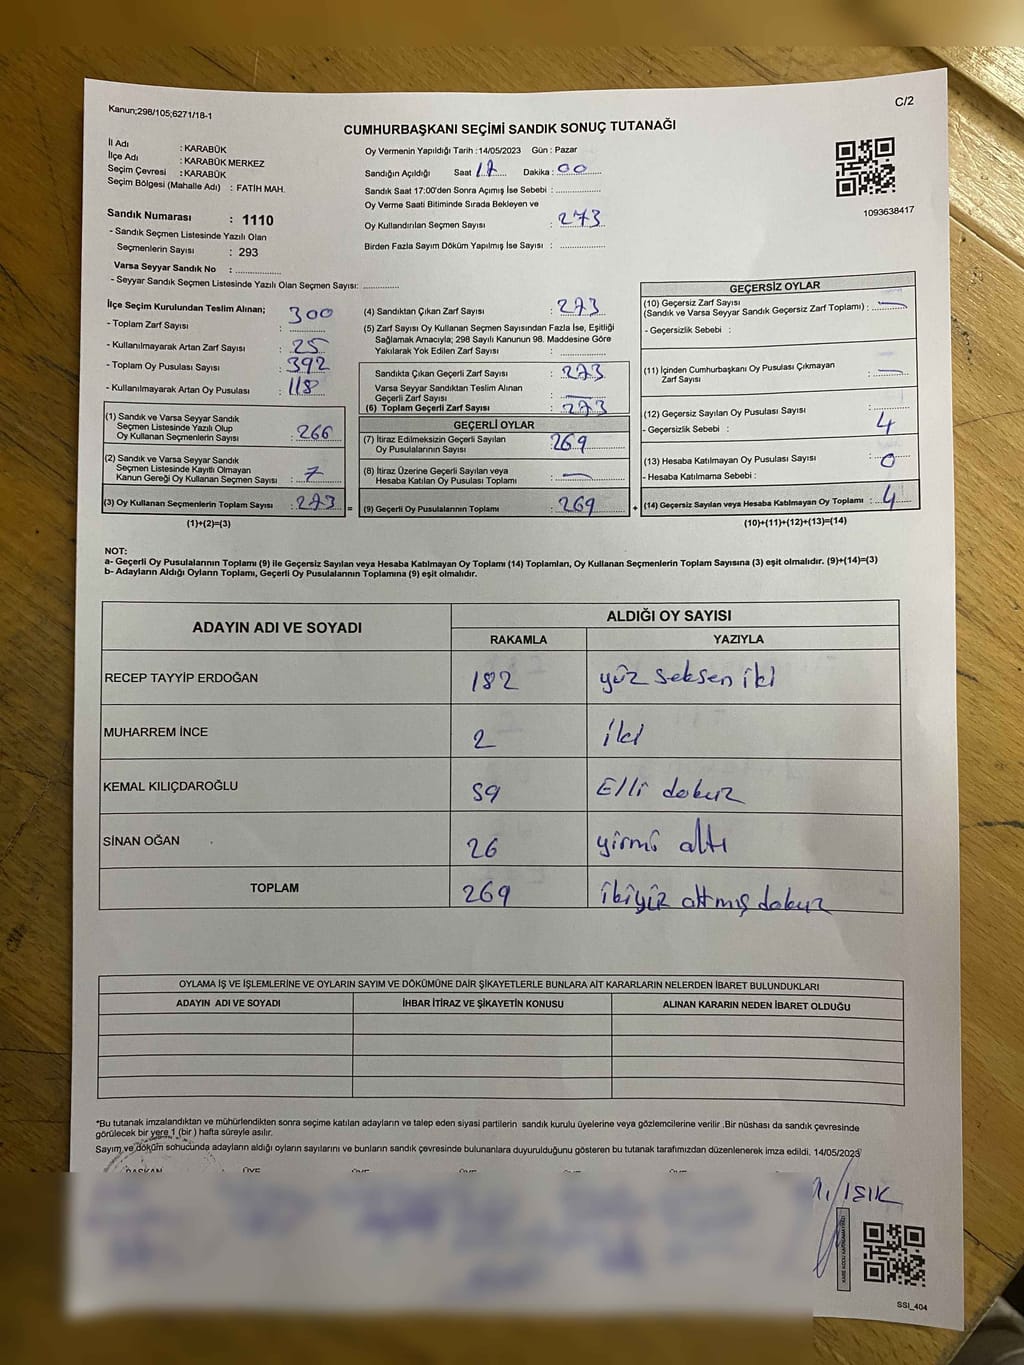 Kanun;298/105;6271/18-1
C/2
CUMHURBAŞKANI SEÇİMİ SANDIK SONUÇ TUTANAĞI
İl Adı : KARABÜK
İlçe Adı : KARABÜK MERKEZ
Seçim Çevresi : KARABÜK
Seçim Bölgesi (Mahalle Adı) : FATİH MAH.
Sandık Numarası : 1110
- Sandık Seçmen Listesinde Yazılı Olan
Seçmenlerin Sayısı : 293
Varsa Seyyar Sandık No : ..............
- Seyyar Sandık Seçmen Listesinde Yazılı Olan Seçmen Sayısı: ............
Oy Vermenin Yapıldığı Tarih : 14/05/2023 Gün : Pazar
Sandığın Açıldığı Saat 17 Dakika : 00
Sandık Saat 17:00'den Sonra Açımış İse Sebebi : ..............
Oy Verme Saati Bitiminde Sırada Bekleyen ve
Oy Kullandırılan Seçmen Sayısı : 273
Birden Fazla Sayım Döküm Yapılmış İse Sayısı : ..............
1093638417
İlçe Seçim Kurulundan Teslim Alınan;
- Toplam Zarf Sayısı : 300
- Kullanılmayarak Artan Zarf Sayısı : 25
- Toplam Oy Pusulası Sayısı : 392
- Kullanılmayarak Artan Oy Pusulası : 118
(1) Sandık ve Varsa Seyyar Sandık
Seçmen Listesinde Yazılı Olup
Oy Kullanan Seçmenlerin Sayısı : 266
(2) Sandık ve Varsa Seyyar Sandık
Seçmen Listesinde Kayıtlı Olmayan
Kanun Gereği Oy Kullanan Seçmen Sayısı : 7
(3) Oy Kullanan Seçmenlerin Toplam Sayısı : 273 =
(1)+(2)=(3)
(4) Sandıktan Çıkan Zarf Sayısı : 273
(5) Zarf Sayısı Oy Kullanan Seçmen Sayısından Fazla İse, Eşitliği
Sağlamak Amacıyla; 298 Sayılı Kanunun 98. Maddesine Göre
Yakılarak Yok Edilen Zarf Sayısı : ..............
Sandıkta Çıkan Geçerli Zarf Sayısı : 273
Varsa Seyyar Sandıktan Teslim Alınan
Geçerli Zarf Sayısı : —
(6) Toplam Geçerli Zarf Sayısı : 273
GEÇERLİ OYLAR
(7) İtiraz Edilmeksizin Geçerli Sayılan
Oy Pusulalarının Sayısı : 269
(8) İtiraz Üzerine Geçerli Sayılan veya
Hesaba Katılan Oy Pusulası Toplamı : —
(9) Geçerli Oy Pusulalarının Toplamı : 269 +
GEÇERSİZ OYLAR
(10) Geçersiz Zarf Sayısı
(Sandık ve Varsa Seyyar Sandık Geçersiz Zarf Toplamı) : —
- Geçersizlik Sebebi :
(11) İçinden Cumhurbaşkanı Oy Pusulası Çıkmayan
Zarf Sayısı : —
(12) Geçersiz Sayılan Oy Pusulası Sayısı : 4
- Geçersizlik Sebebi :
(13) Hesaba Katılmayan Oy Pusulası Sayısı : 0
- Hesaba Katılmama Sebebi :
(14) Geçersiz Sayılan veya Hesaba Katılmayan Oy Toplamı : 4
(10)+(11)+(12)+(13)=(14)
NOT:
a- Geçerli Oy Pusulalarının Toplamı (9) ile Geçersiz Sayılan veya Hesaba Katılmayan Oy Toplamı (14) Toplamları, Oy Kullanan Seçmenlerin Toplam Sayısına (3) eşit olmalıdır. (9)+(14)=(3)
b- Adayların Aldığı Oyların Toplamı, Geçerli Oy Pusulalarının Toplamına (9) eşit olmalıdır.
ADAYIN ADI VE SOYADI ALDIĞI OY SAYISI
RAKAMLA YAZIYLA
RECEP TAYYİP ERDOĞAN 182 yüz seksen iki
MUHARREM İNCE 2 iki
KEMAL KILIÇDAROĞLU 59 Elli dokuz
SİNAN OĞAN 26 yirmi altı
TOPLAM 269 ikiyüz altmış dokuz
OYLAMA İŞ VE İŞLEMLERİNE VE OYLARIN SAYIM VE DÖKÜMÜNE DAİR ŞİKAYETLERLE BUNLARA AİT KARARLARIN NELERDEN İBARET BULUNDUKLARI
ADAYIN ADI VE SOYADI İHBAR İTİRAZ VE ŞİKAYETİN KONUSU ALINAN KARARIN NEDEN İBARET OLDUĞU
*Bu tutanak imzalandıktan ve mühürlendikten sonra seçime katılan adayların ve talep eden siyasi partilerin sandık kurulu üyelerine veya gözlemcilerine verilir .Bir nüshası da sandık çevresinde
görülecek bir yere 1 (bir ) hafta süreyle asılır.
Sayım ve döküm sonucunda adayların aldığı oyların sayılarını ve bunların sandık çevresinde bulunanlara duyurulduğunu gösteren bu tutanak tarafımızdan düzenlenerek imza edildi. 14/05/2023
BAŞKAN ÜYE ÜYE ÜYE ÜYE ÜYE
IŞIK
SSI_404